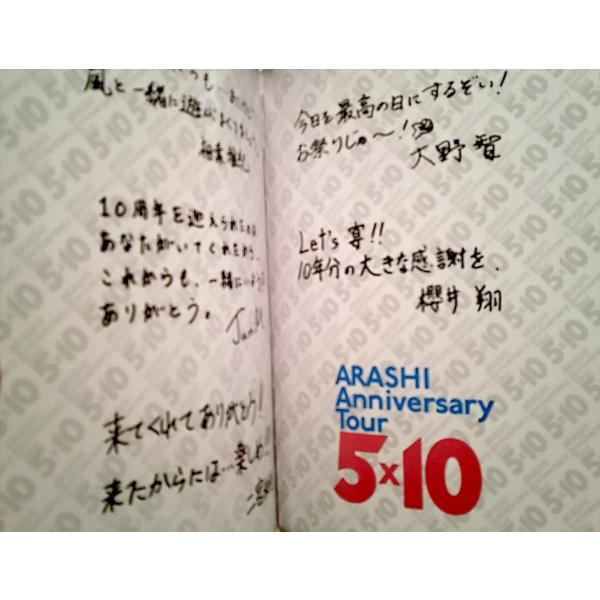 も
風と一緒に遊び
相葉雅紀
10周年を迎えられたのは
あなたがいてくれたから。
これからも、一緒にい
ありがとう。
Jun.M
来てくれてありがとう!
来たからには…楽しめ!!
二宮
今日を最高の日にするぞい!
お祭りじゃ〜!
大野智
Let's 宴!!
10年分の大きな感謝を.
櫻井翔
ARASHI
Anniversary
Tour
5×10